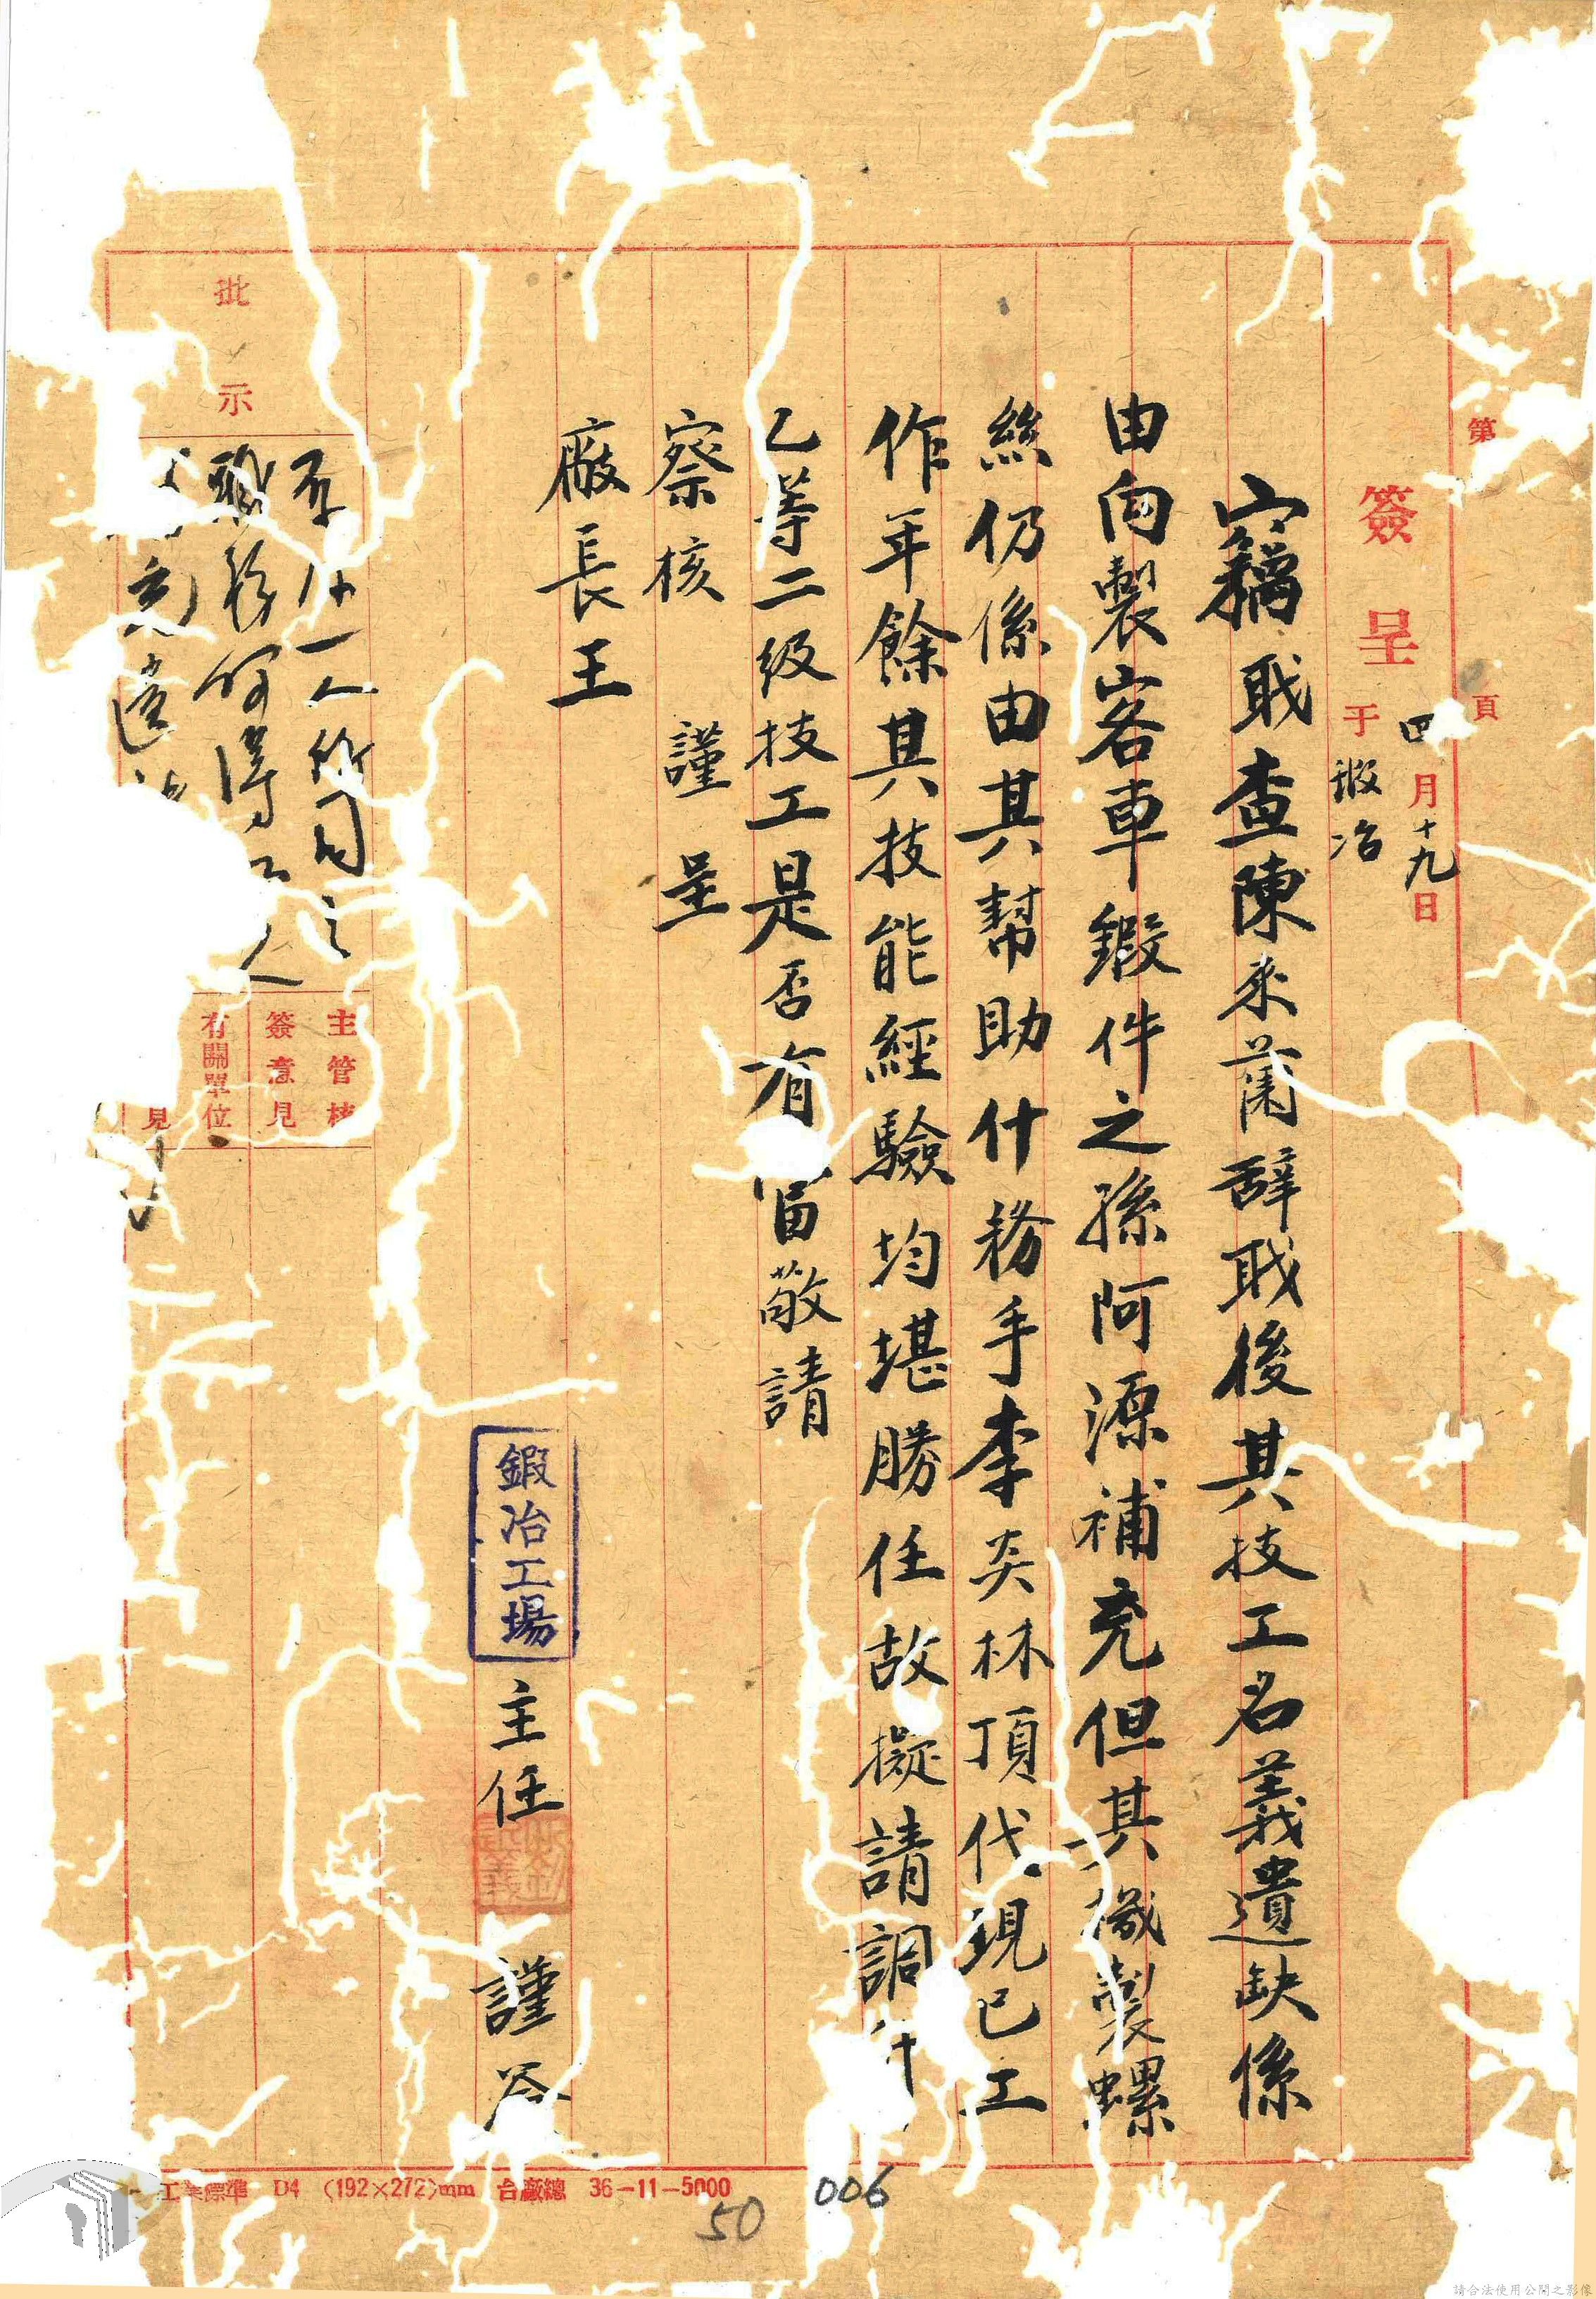 第 頁
簽呈 于 鍛冶
四月十九日
竊职查陳来蘭辭职後其技工名義遺缺係
由向製客車鍛件之孫阿源補充但其織製螺
絲仍係由其幫助什務手李炎林頂代現已工
作年餘其技能經驗均堪勝任故擬請調
乙等二级技工是否有當敬請
察核 謹呈
廠長王
鍛冶工場 主任 謹簽
批示
一人
得 人
主管核
簽意見
有關單位
見
工業標準 D4 (192×272)mm 台廠總 36-11-5000
50 006
請合法使用公開之影像